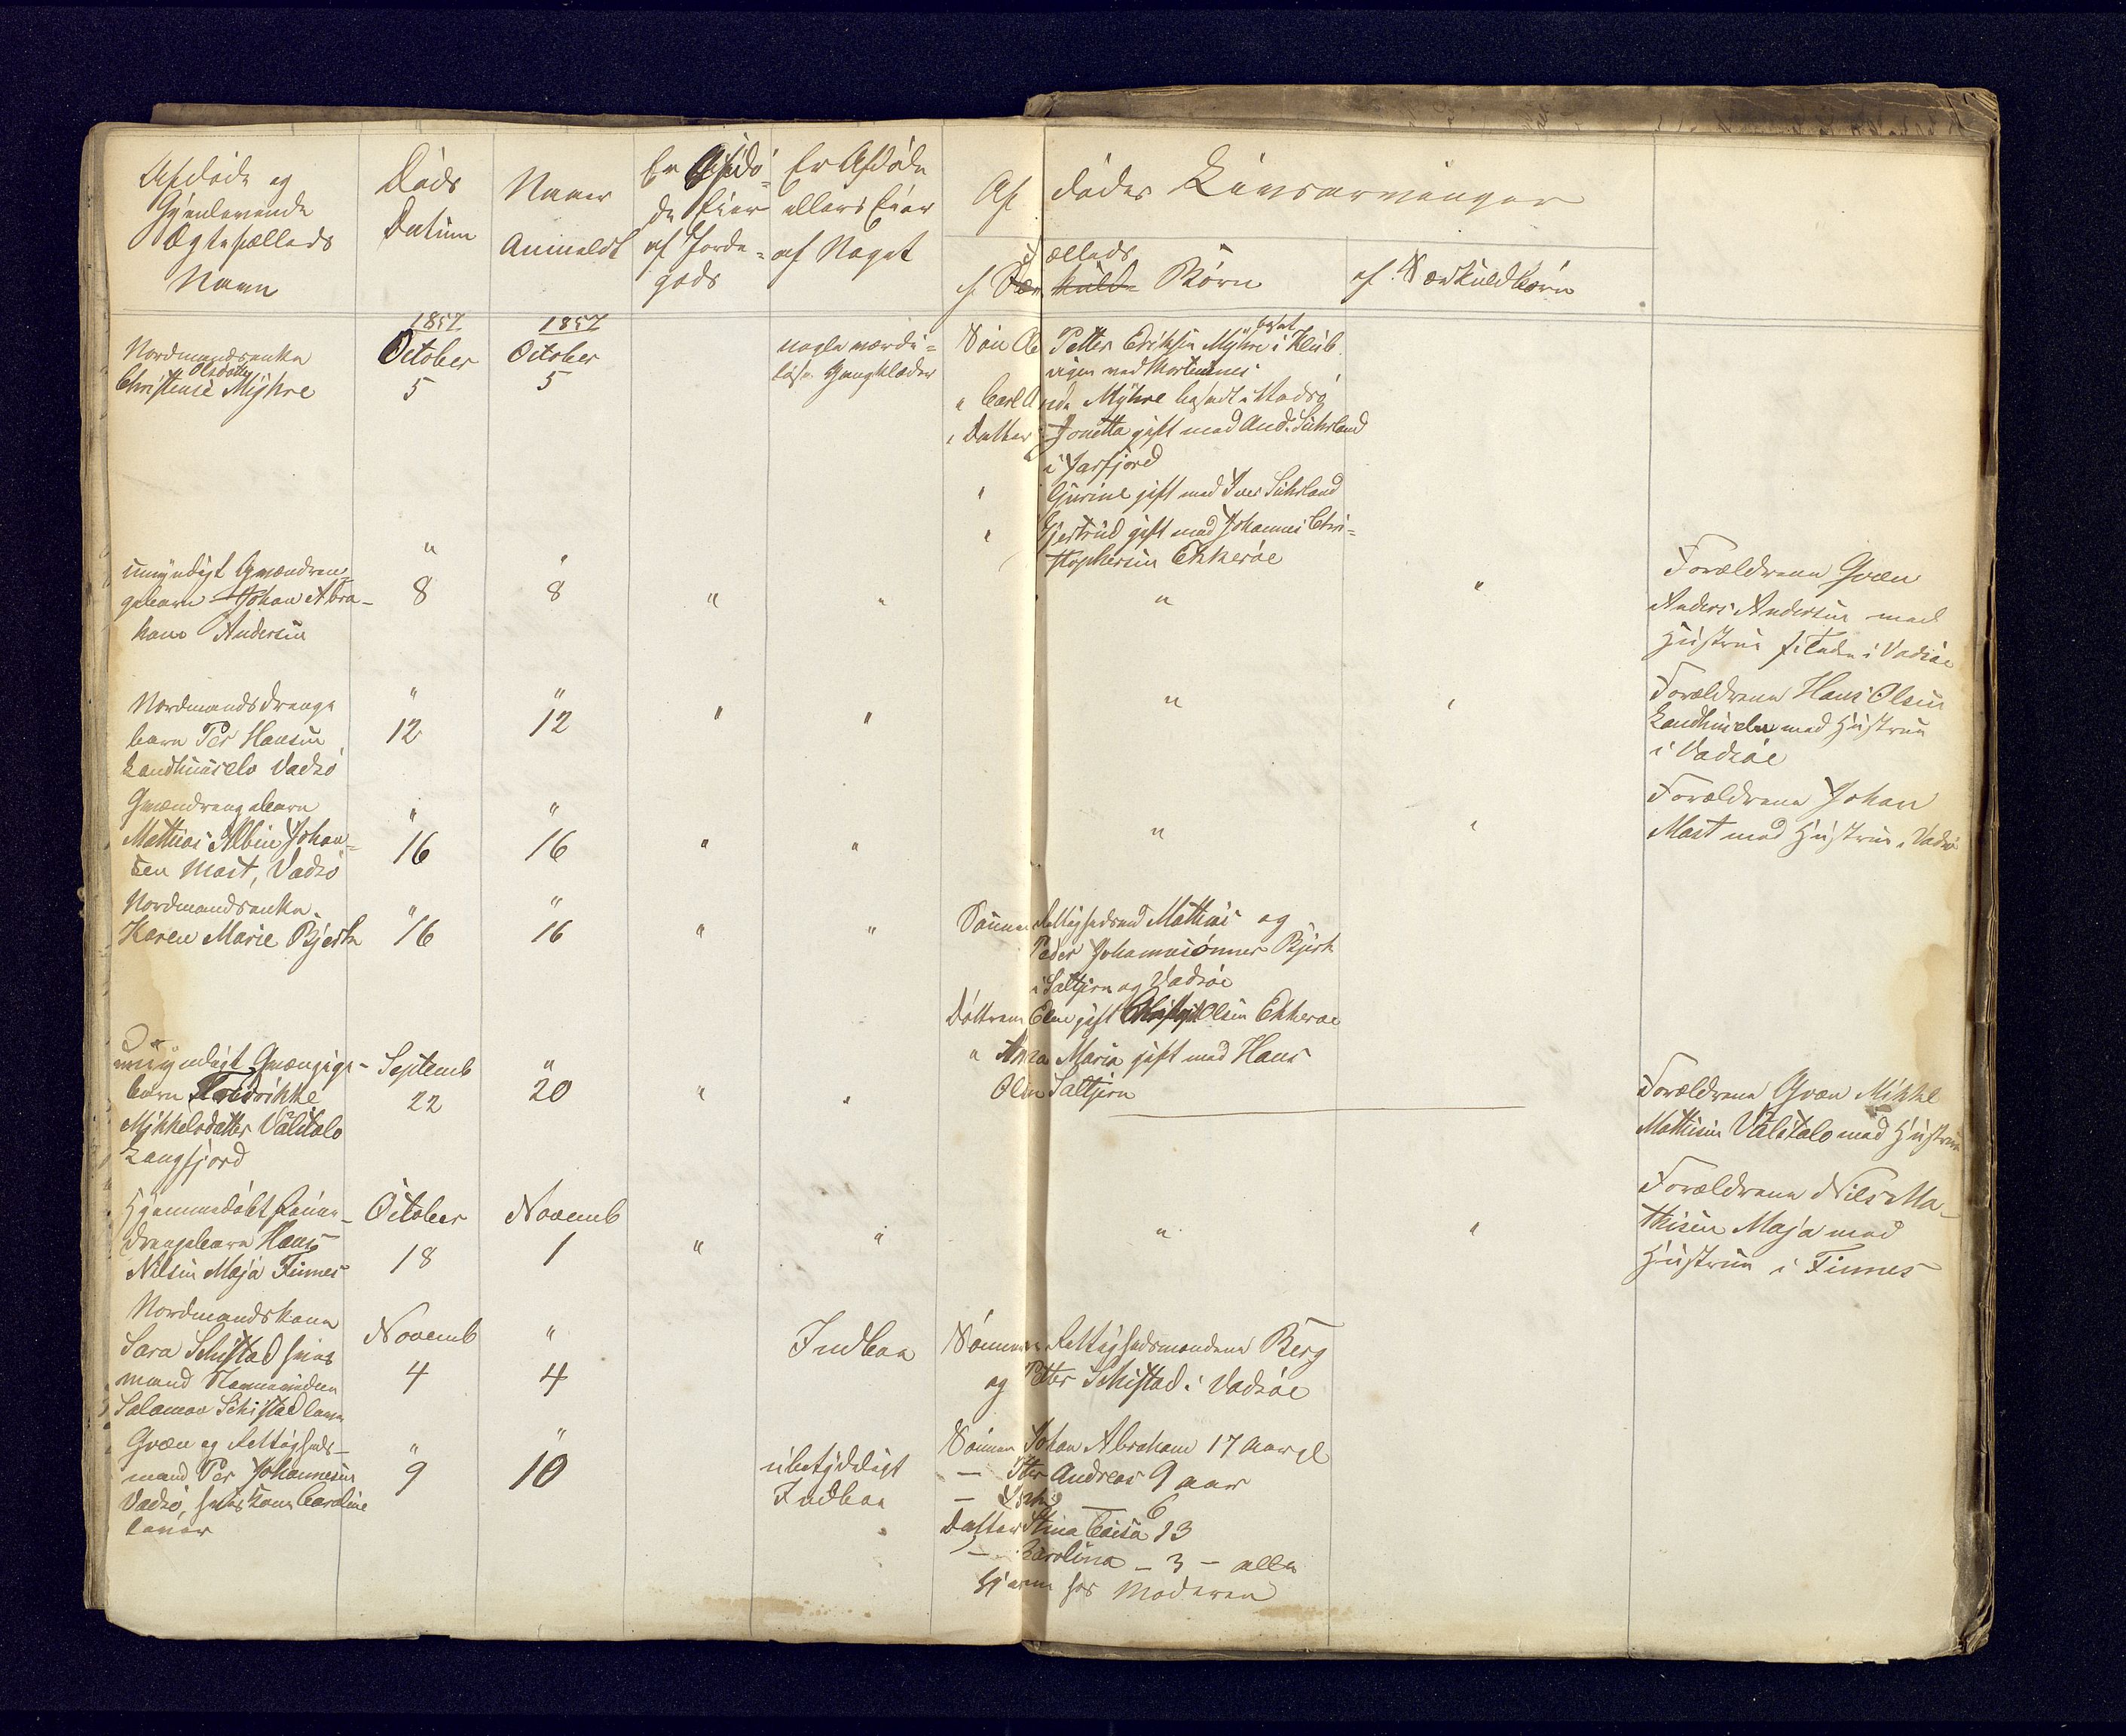 Afdøde og
Gjenlevende
Ægtefælleds
Navn
Døds
Datum
Naar
Anmeldt
Er Afdø-
de Eier
af Jorde-
gods
Er Afdøde
ellers Eier
af Noget
Af dødes Livsarvinger
fælleds
Børn
af Særkuldbørn
1857
1857
Nordmandsenke
Olsdatter
Christense Myhre
October
5
October
5
nogle værdi-
løse Gangklæder
Søn Ole Petter Eriksen Myhre bosat i Klub
vigen ved Mortensnes
" Carl Myhre bosadt i Vadsø
" Datter Jonetta gift med And. Suhrland
i Jarfjord
" Gurine gift med Iver Suhrland
" Gjertrud gift med Johannes Chri-
stophersen Ekkerøe
umyndigt Qvændren-
gebarn Johan Abra-
ham Andersen
"
8
"
8
"
"
"
"
Forældrene Qvæn
Anders Andersen med
Hustrue i Vadsøe
Nordmandsdrenge
barn Per Hansen
Landhuuselv Vadsø
"
12
"
12
"
"
"
"
Forældrene Hans Olsen
Landhuselv med Hustrue
i Vadsøe
Qvændrengebarn
Mathias Albin Johan-
sen Mast, Vadsø
"
16
"
16
"
"
"
"
Forældrene Johan
Mast med Hustrue, Vadsø
Nordmandsenke
Karen Marie Bjerk
"
16
"
16
"
"
Sønner Rettighedsmd Mathias og
Peder Johannesønner Bjerk
i Saltjern og Vadsøe
Døttrene Elen gift Olsen Ekkerøe
" Anna Maria gift med Hans
Olsen Saltjern
umyndigt Qvænpige-
barn Fredrikke
Mikkelsdatter Välitalo
Langfjord
Septemb
22
"
20
"
"
Forældrene Qvæn Mikkel
Mathisen Välitalo med Hustrue
Hjemmedøbt Finne-
drengebarn Hans
Nilsen Maja Finnes
October
18
Novemb
1
"
"
"
"
Forældrene Nils Ma-
thisen Maja med
Hustrue i Finnes
Nordmandskone
Sara Schistad hvis
mand
Salamon Schistad lever
Novemb
4
"
4
Indboe
Sønnerne Rettighedsmændene Berg
og Petter Schistad i Vadsøe
Qvæn og Rettigheds-
mand Per Johannesen
Vadsø, hvis kone Caroline
lever
"
9
"
10
ubetydeligt
Indboe
Sønnen Johan Abraham 17 aar gl
— Andreas 9 aar
— — 6
Datter Stina Caisa 13
— Carolina — 3 — alle
hjemme hos Moderen